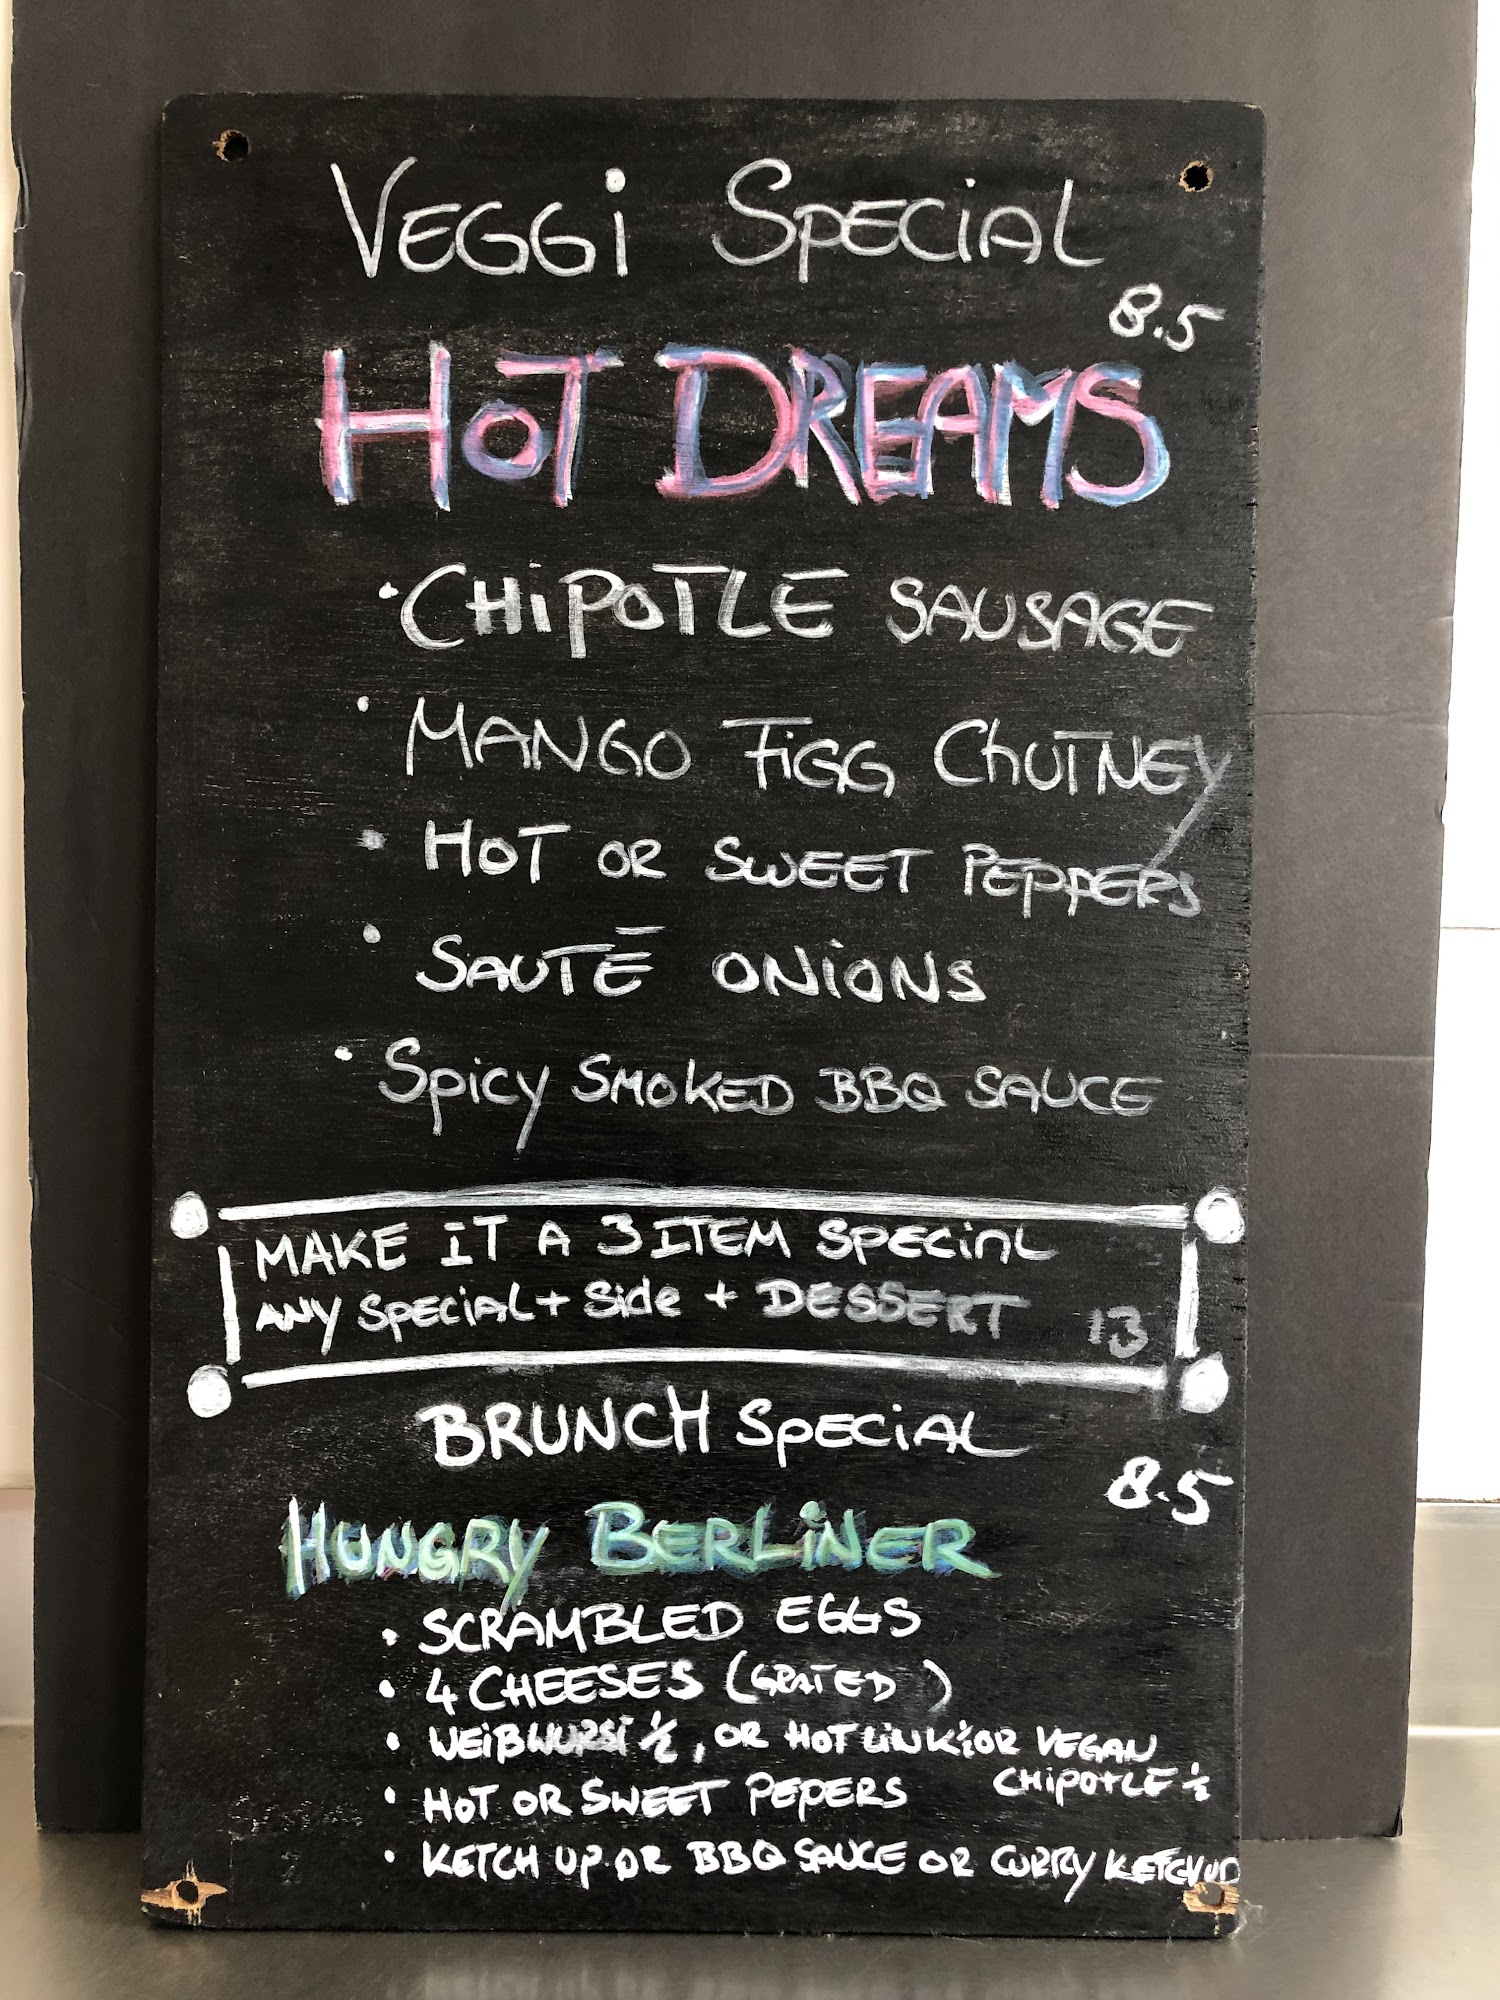 VEGGi SPECiAL
8.5
HOT DREAMS
• CHiPOTLE SAUSAGE
• MANGO FiGG CHUTNEY
• HOT OR SWEET PEPPERS
• SAUTĒ ONiONS
• SPicy SMOKED BBQ SAUCE
MAKE IT A 3 ITEM SPECiAL
ANY SPECiAL + Side + DESSERT 13
BRUNCH SPECiAL
8.5
HUNGRY BERLiNER
• SCRAMBLED EGGS
• 4 CHEESES (GRATED)
• WEißWURST ½, OR HOT LiNK ½ OR VEGAN
CHiPOTLE ½
• HOT OR SWEET PEPERS
• KETCH UP OR BBQ SAUCE OR CURRY KETCHUP